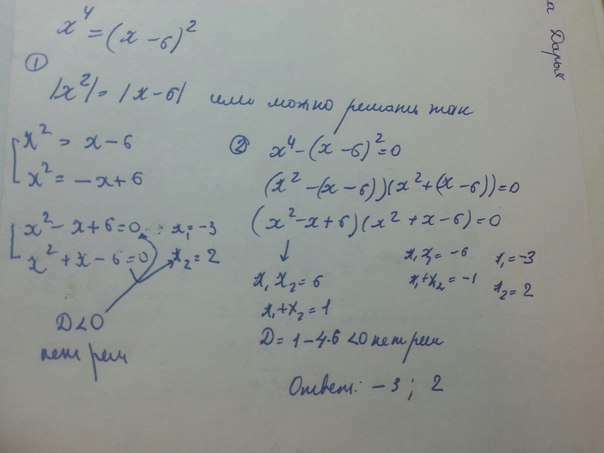 x⁴ = (x − 6)²
①
|x²| = |x − 6| или можно решать так
[ x² = x − 6
[ x² = −x + 6
[ x² − x + 6 = 0
[ x² + x − 6 = 0
x₁ = −3
x₂ = 2
D < 0
нет реш
② x⁴ − (x − 6)² = 0
(x² − (x − 6))(x² + (x − 6)) = 0
(x² − x + 6)(x² + x − 6) = 0
↓
x₁ x₂ = 6
x₁ + x₂ = 1
D = 1 − 4·6 < 0 нет реш
x₁ x₂ = −6
x₁ + x₂ = −1
x₁ = −3
x₂ = 2
Ответ: −3; 2
Дарья